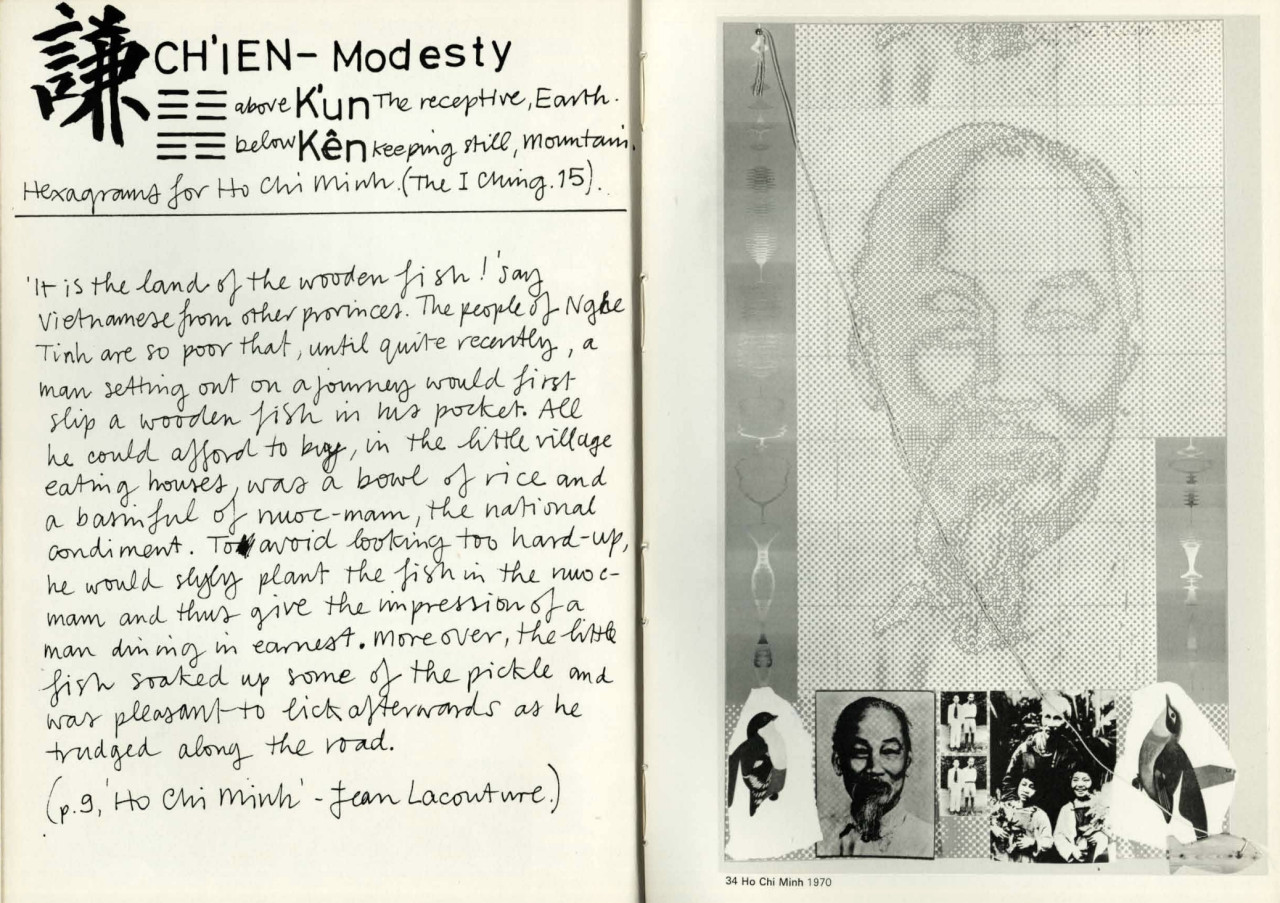 謙 CH'IEN – Modesty
above K'un The receptive, Earth.
below Kên keeping still, Mountain.
Hexagrams for Ho Chi Minh. (The I Ching. 15).
'It is the land of the wooden fish!' say
Vietnamese from other provinces. The people of Nghe
Tinh are so poor that, until quite recently, a
man setting out on a journey would first
slip a wooden fish in his pocket. All
he could afford to buy, in the little village
eating houses, was a bowl of rice and
a basinful of nuoc-mam, the national
condiment. To avoid looking too hard-up,
he would slyly plant the fish in the nuoc-
mam and thus give the impression of a
man dining in earnest. Moreover, the little
fish soaked up some of the pickle and
was pleasant to lick afterwards as he
trudged along the road.
(p.9, 'Ho Chi Minh' - Jean Lacouture.)
34 Ho Chi Minh 1970